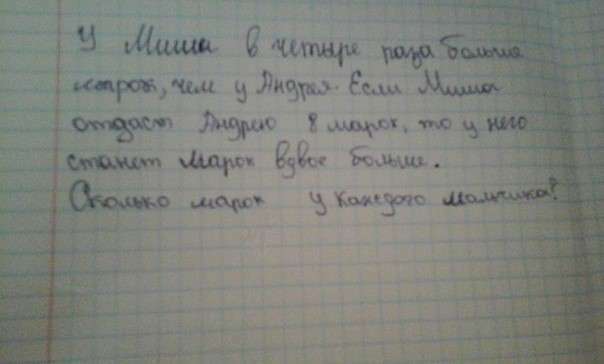 У Миши в четыре раза больше
марок, чем у Андрея. Если Миша
отдаст Андрею 8 марок, то у него
станет марок вдвое больше.
Сколько марок у каждого мальчика?